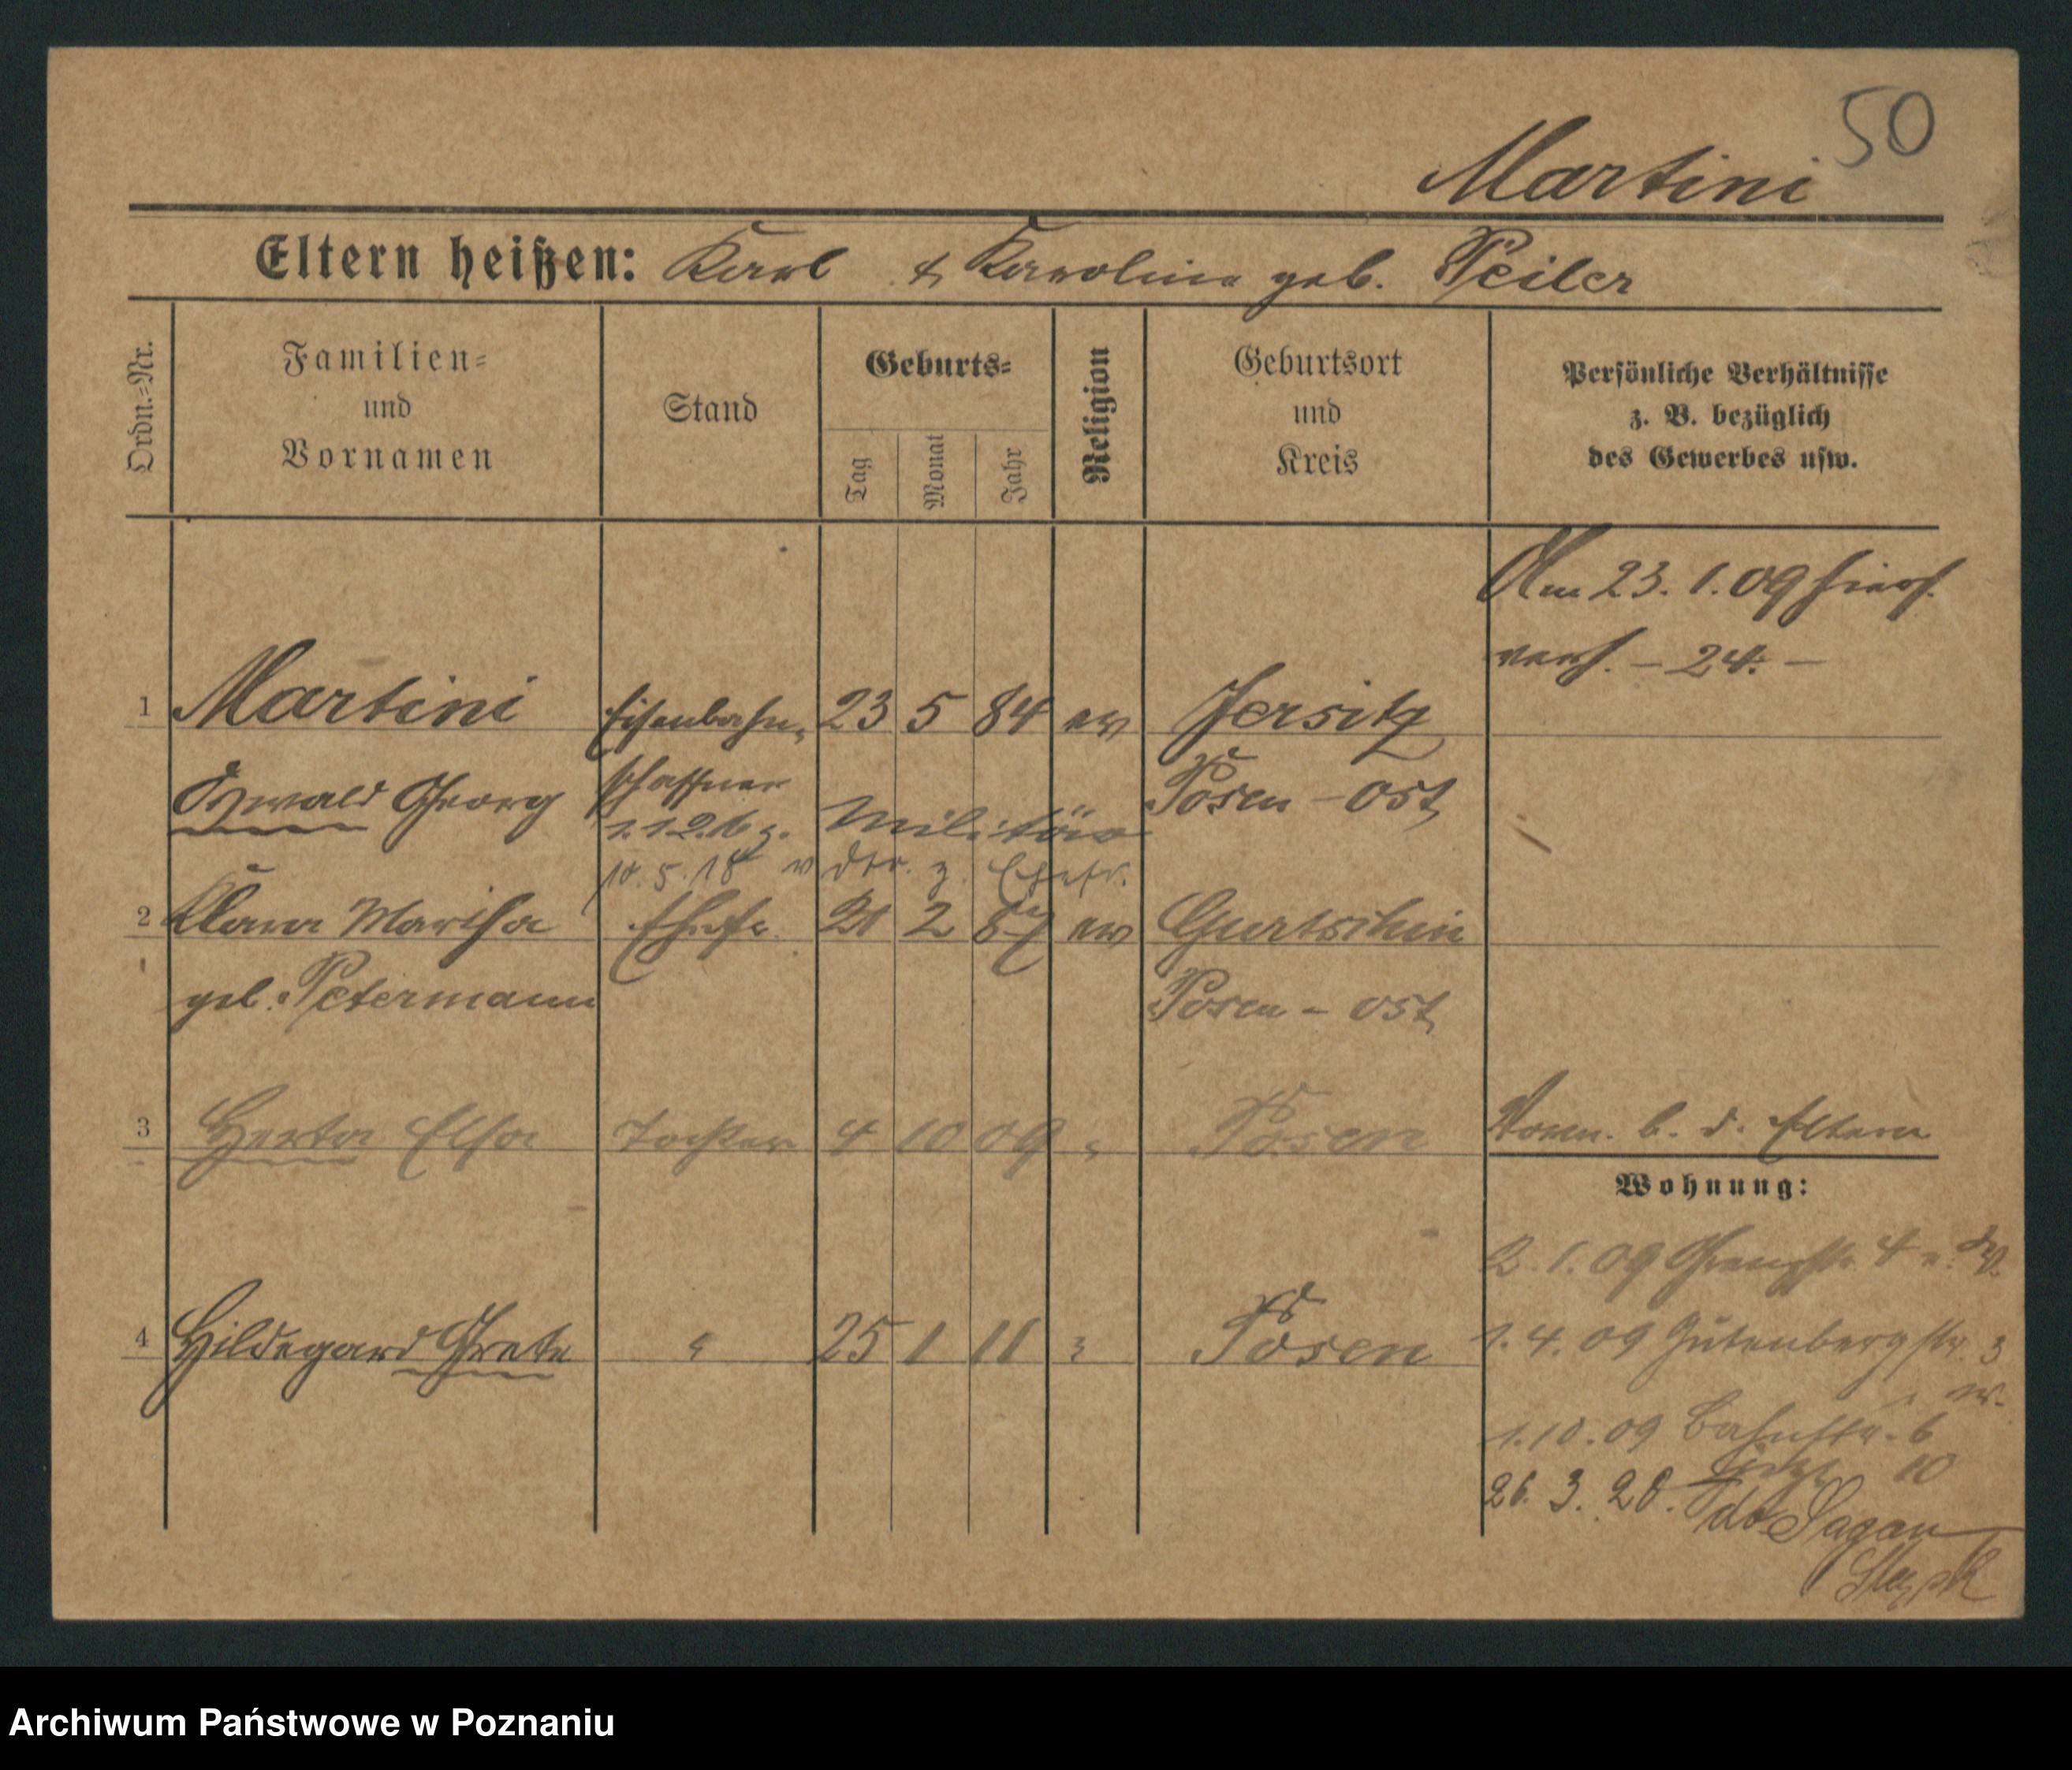 50
Martini
Eltern heißen: Karl & Karoline geb. Peiler
Ordn.-Nr.
Familien-
und
Vornamen
Stand
Geburts-
Tag
Monat
Jahr
Religion
Geburtsort
und
Kreis
Persönliche Verhältnisse
z. B. bezüglich
des Gewerbes usw.
Am 23. 1. 09 hiers.
verh. – 24. –
1 Martini Eisenbahn- 23 5 84 ev Jersitz
Oswald Georg schaffner Posen - Ost
1.12.16 z. Militär
10. 5. 18 v z. Ehefr.
2 Klara Martha Ehefr. 21 2 87 ev Gurtschin
geb. Petermann Posen - Ost
3 Herta Elsa Tochter 4 10 09 " Posen
b. d. Eltern
Wohnung:
2. 1. 09 4
4 Hildegard Grete " 25 1 11 " Posen
1. 4. 09 Gutenbergstr. 3
1. 10. 09 Bahnstr. 6
10
26. 3. 20. Sagan
Archiwum Państwowe w Poznaniu